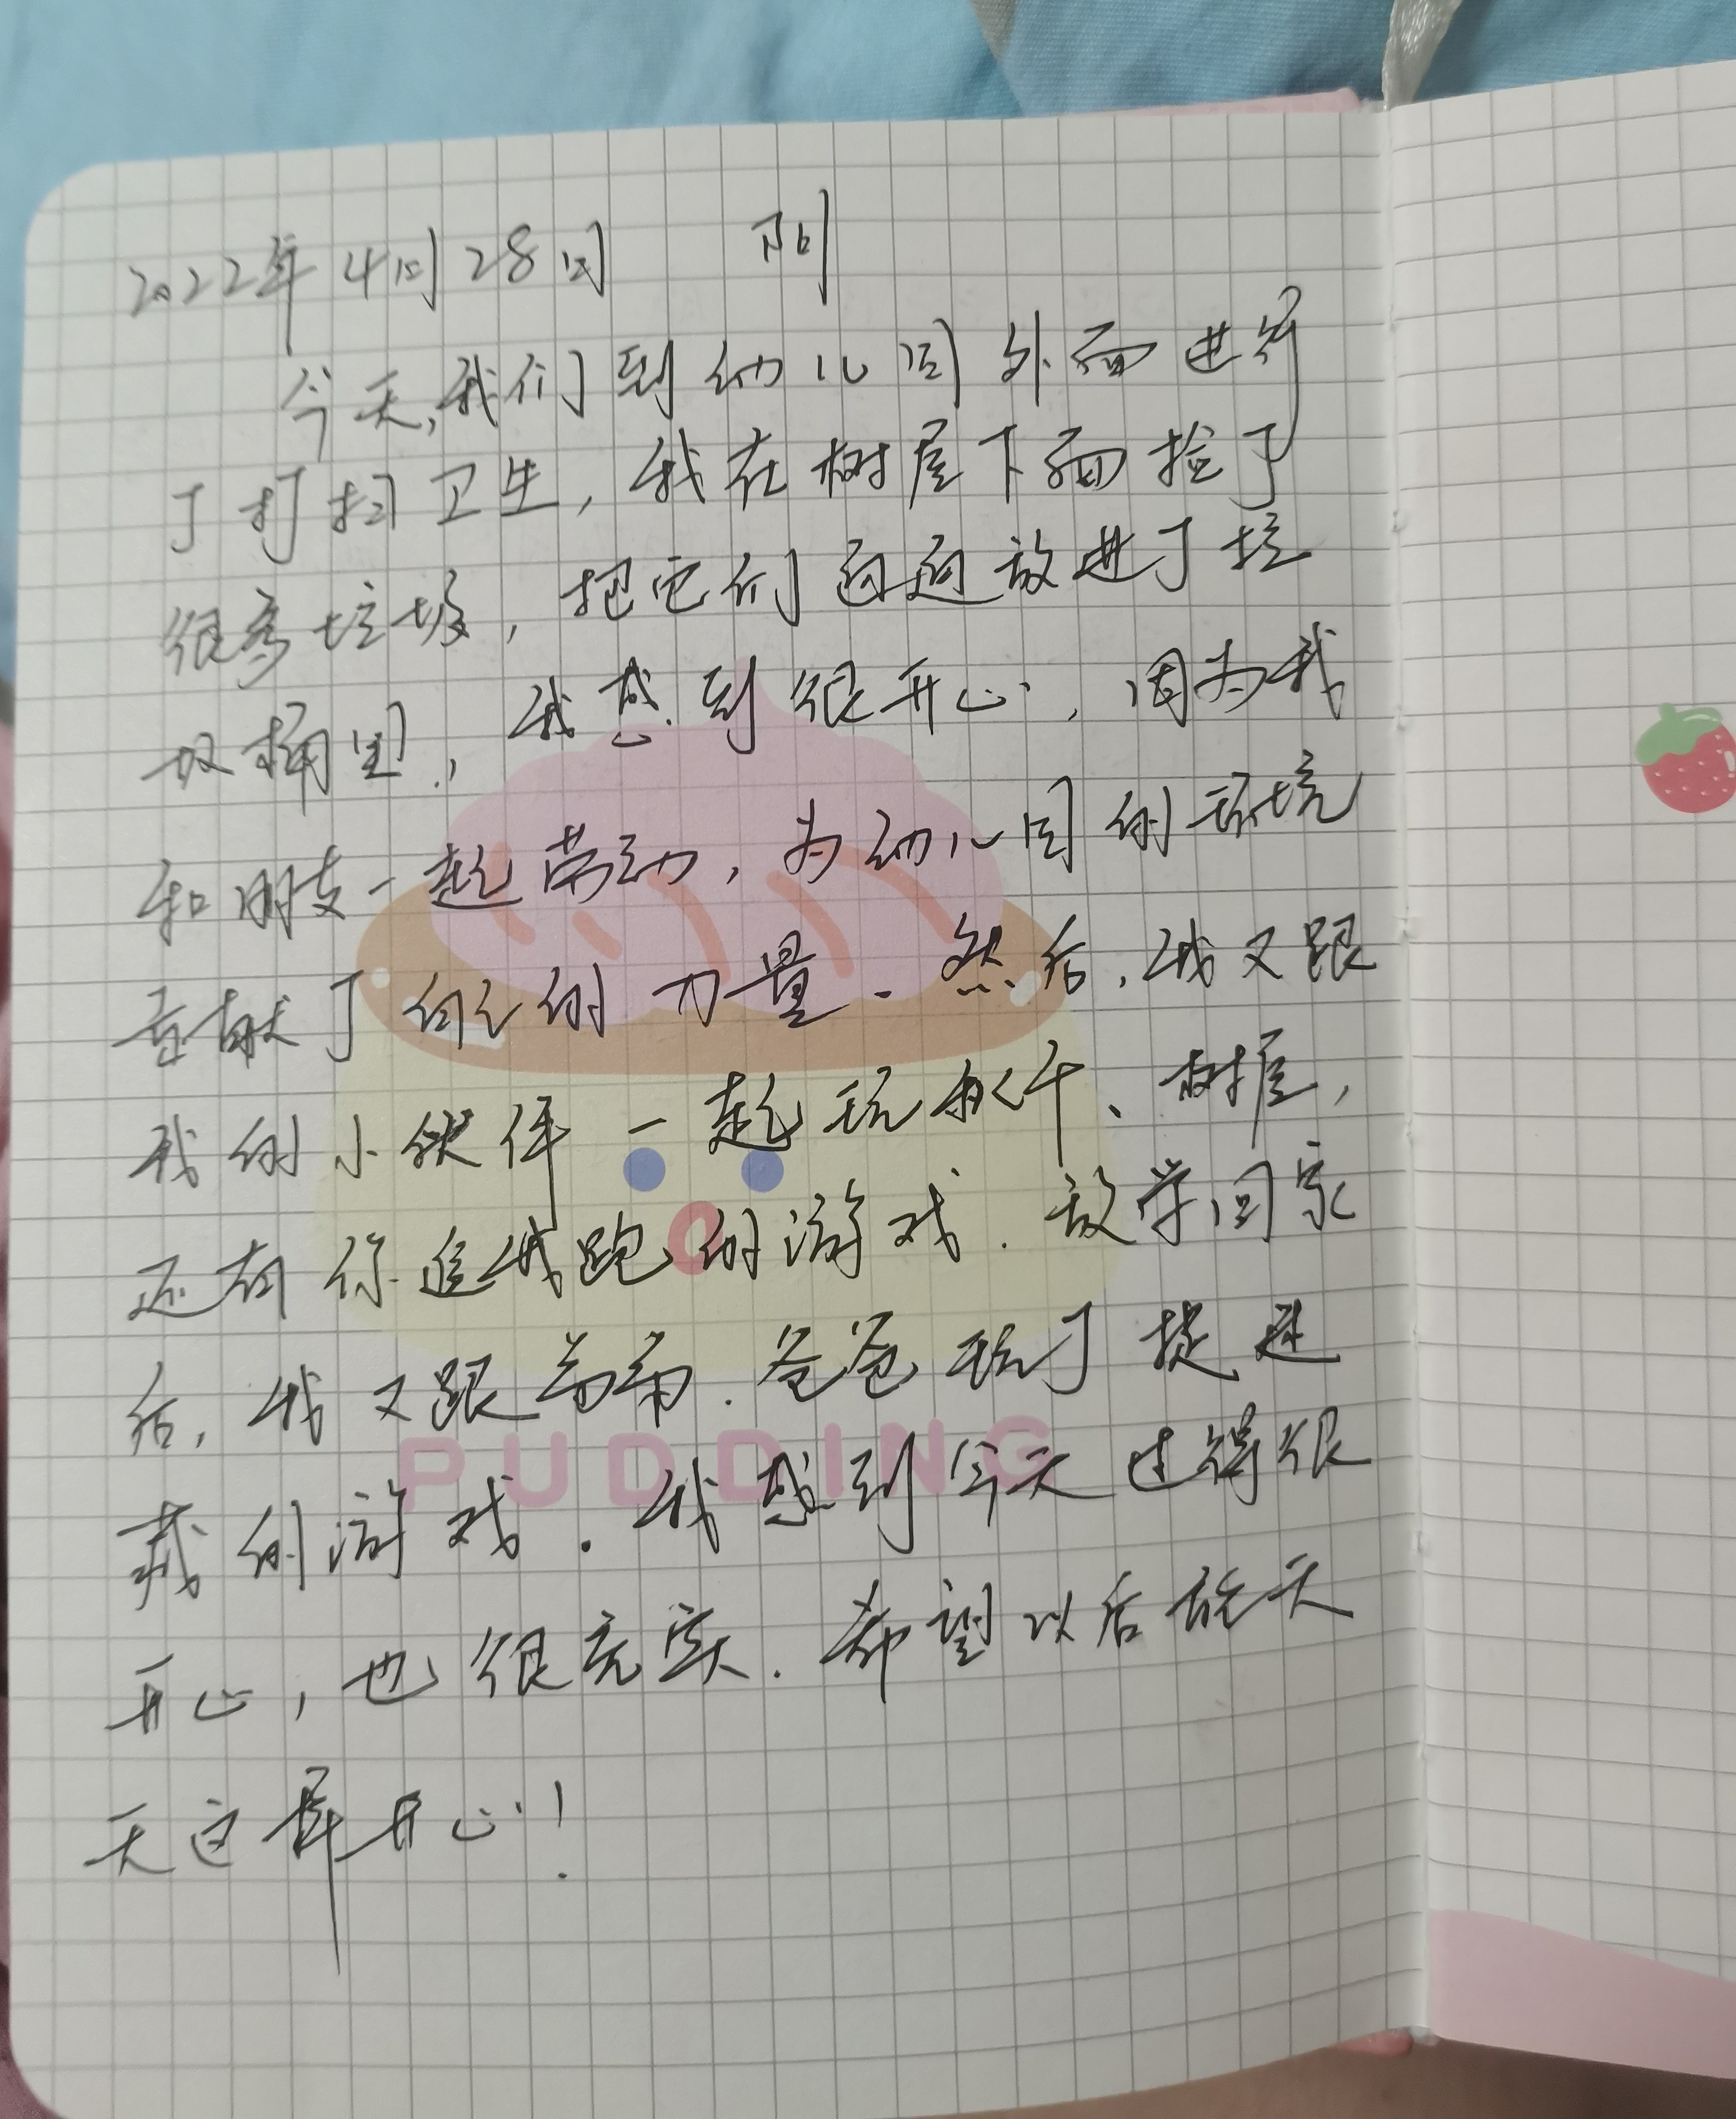 2022年4月28日 阴
今天,我们到幼儿园外面进行
了打扫卫生,我在树屋下面捡了
很多垃圾,把它们通通放进了垃
圾桶里,我感到很开心,因为我
和朋友一起劳动,为幼儿园的环境
贡献了自己的力量。然后,我又跟
我的小伙伴一起玩秋千、树屋,
还有你追我跑的游戏.放学回家
后,我又跟爸爸玩了捉迷
藏的游戏.我感到今天过得很
开心,也很充实.希望以后每天
天这样开心!
PUDDING